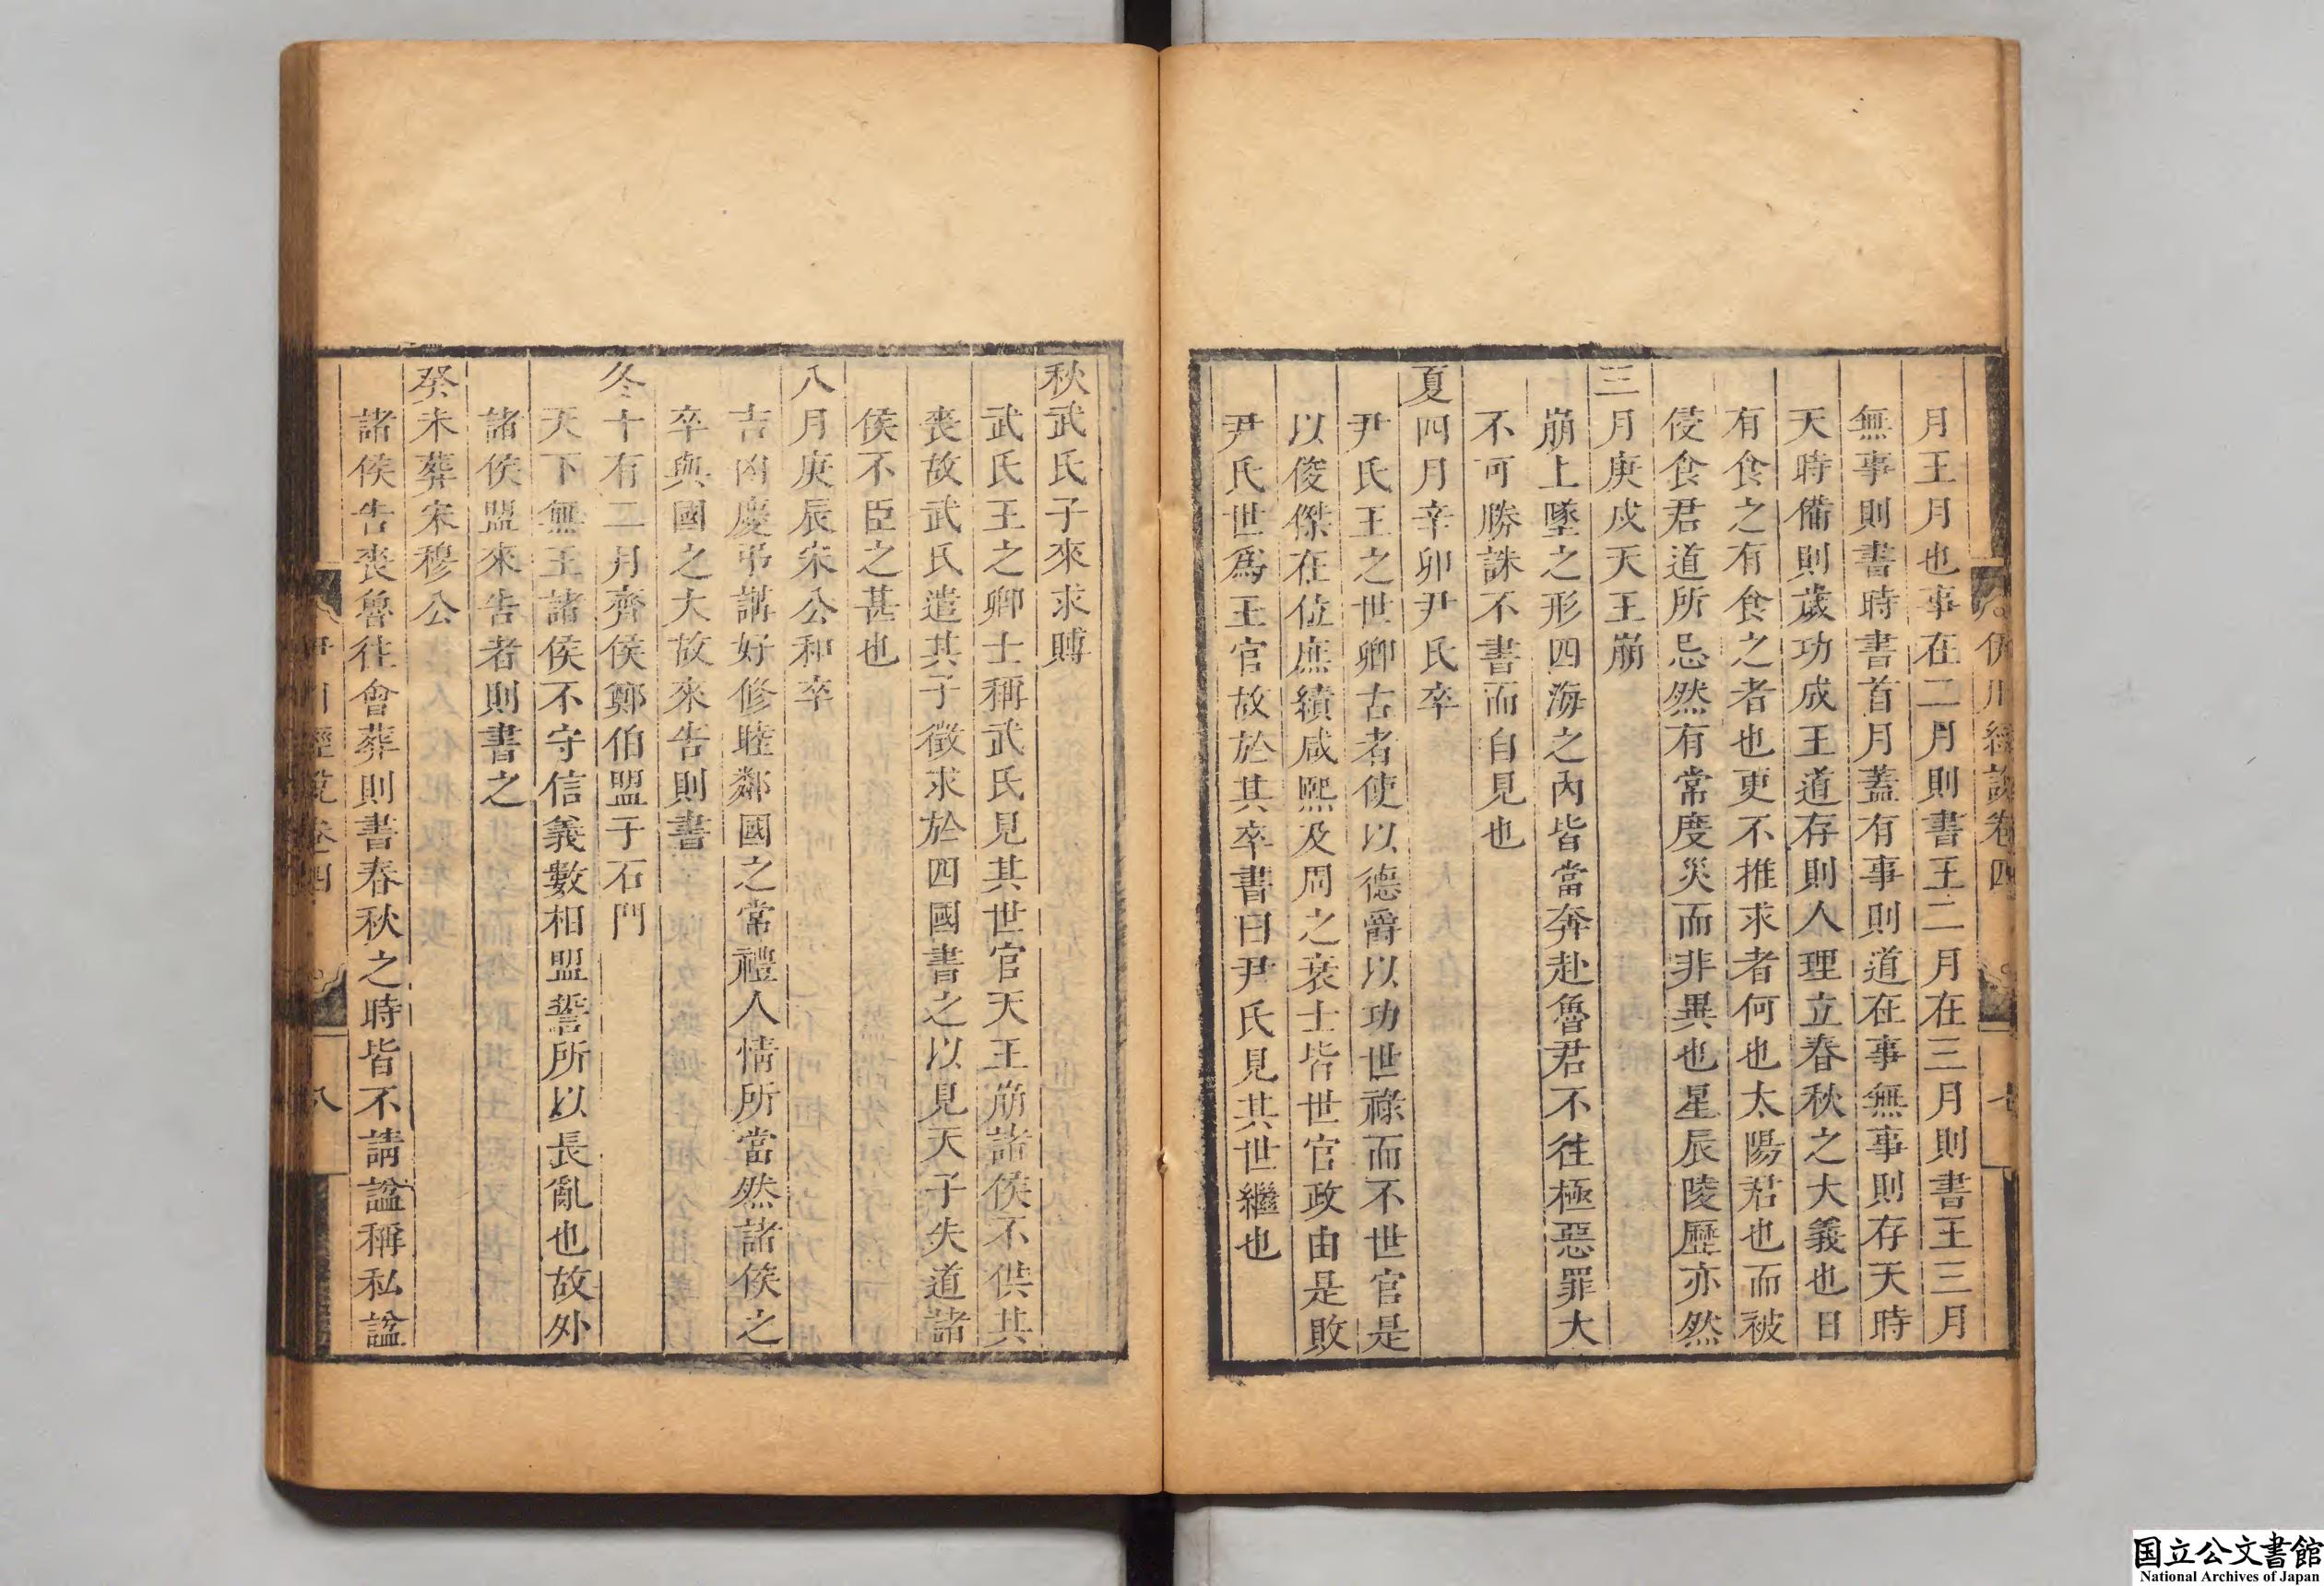 伊川經說卷四
七
月王月也事在二月則書王二月在三月則書王三月
無事則書時書首月蓋有事則道在事無事則存天時
天時備則歲功成王道存則人理立春秋之大義也日
有食之有食之者也更不推求者何也太陽君也而被
侵食君道所忌然有常度災而非異也星辰陵歷亦然
三月庚戌天王崩
崩上墜之形四海之內皆當奔赴魯君不往極惡罪大
不可勝誅不書而自見也
夏四月辛卯尹氏卒
尹氏王之世卿古者使以德爵以功世祿而不世官是
以俊傑在位庶績咸熙及周之衰士皆世官政由是敗
尹氏世為王官故於其卒書曰尹氏見其世繼也
秋武氏子來求賻
武氏王之卿士稱武氏見其世官天王崩諸侯不供其
喪故武氏遣其子徵求於四國書之以見天子失道諸
侯不臣之甚也
八月庚辰宋公和卒
吉凶慶弔講好修睦鄰國之常禮人情所當然諸侯之
卒與國之大故來告則書
冬十有二月齊侯鄭伯盟于石門
天下無王諸侯不守信義數相盟誓所以長亂也故外
諸侯盟來告者則書之
癸未葬宋穆公
諸侯告喪魯往會葬則書春秋之時皆不請諡稱私諡
伊川經說卷四
八
国立公文書館
National Archives of Japan